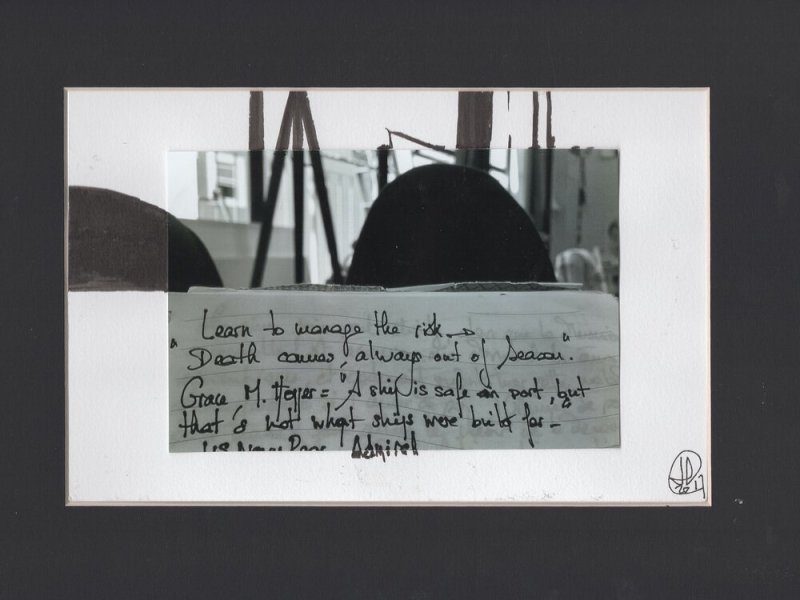 Learn to manage the risk
"Death comes, always out of Season".
Grace M. Hopper = "A ship is safe in port, but
that's not what ships were built for"
US Navy Admiral
17